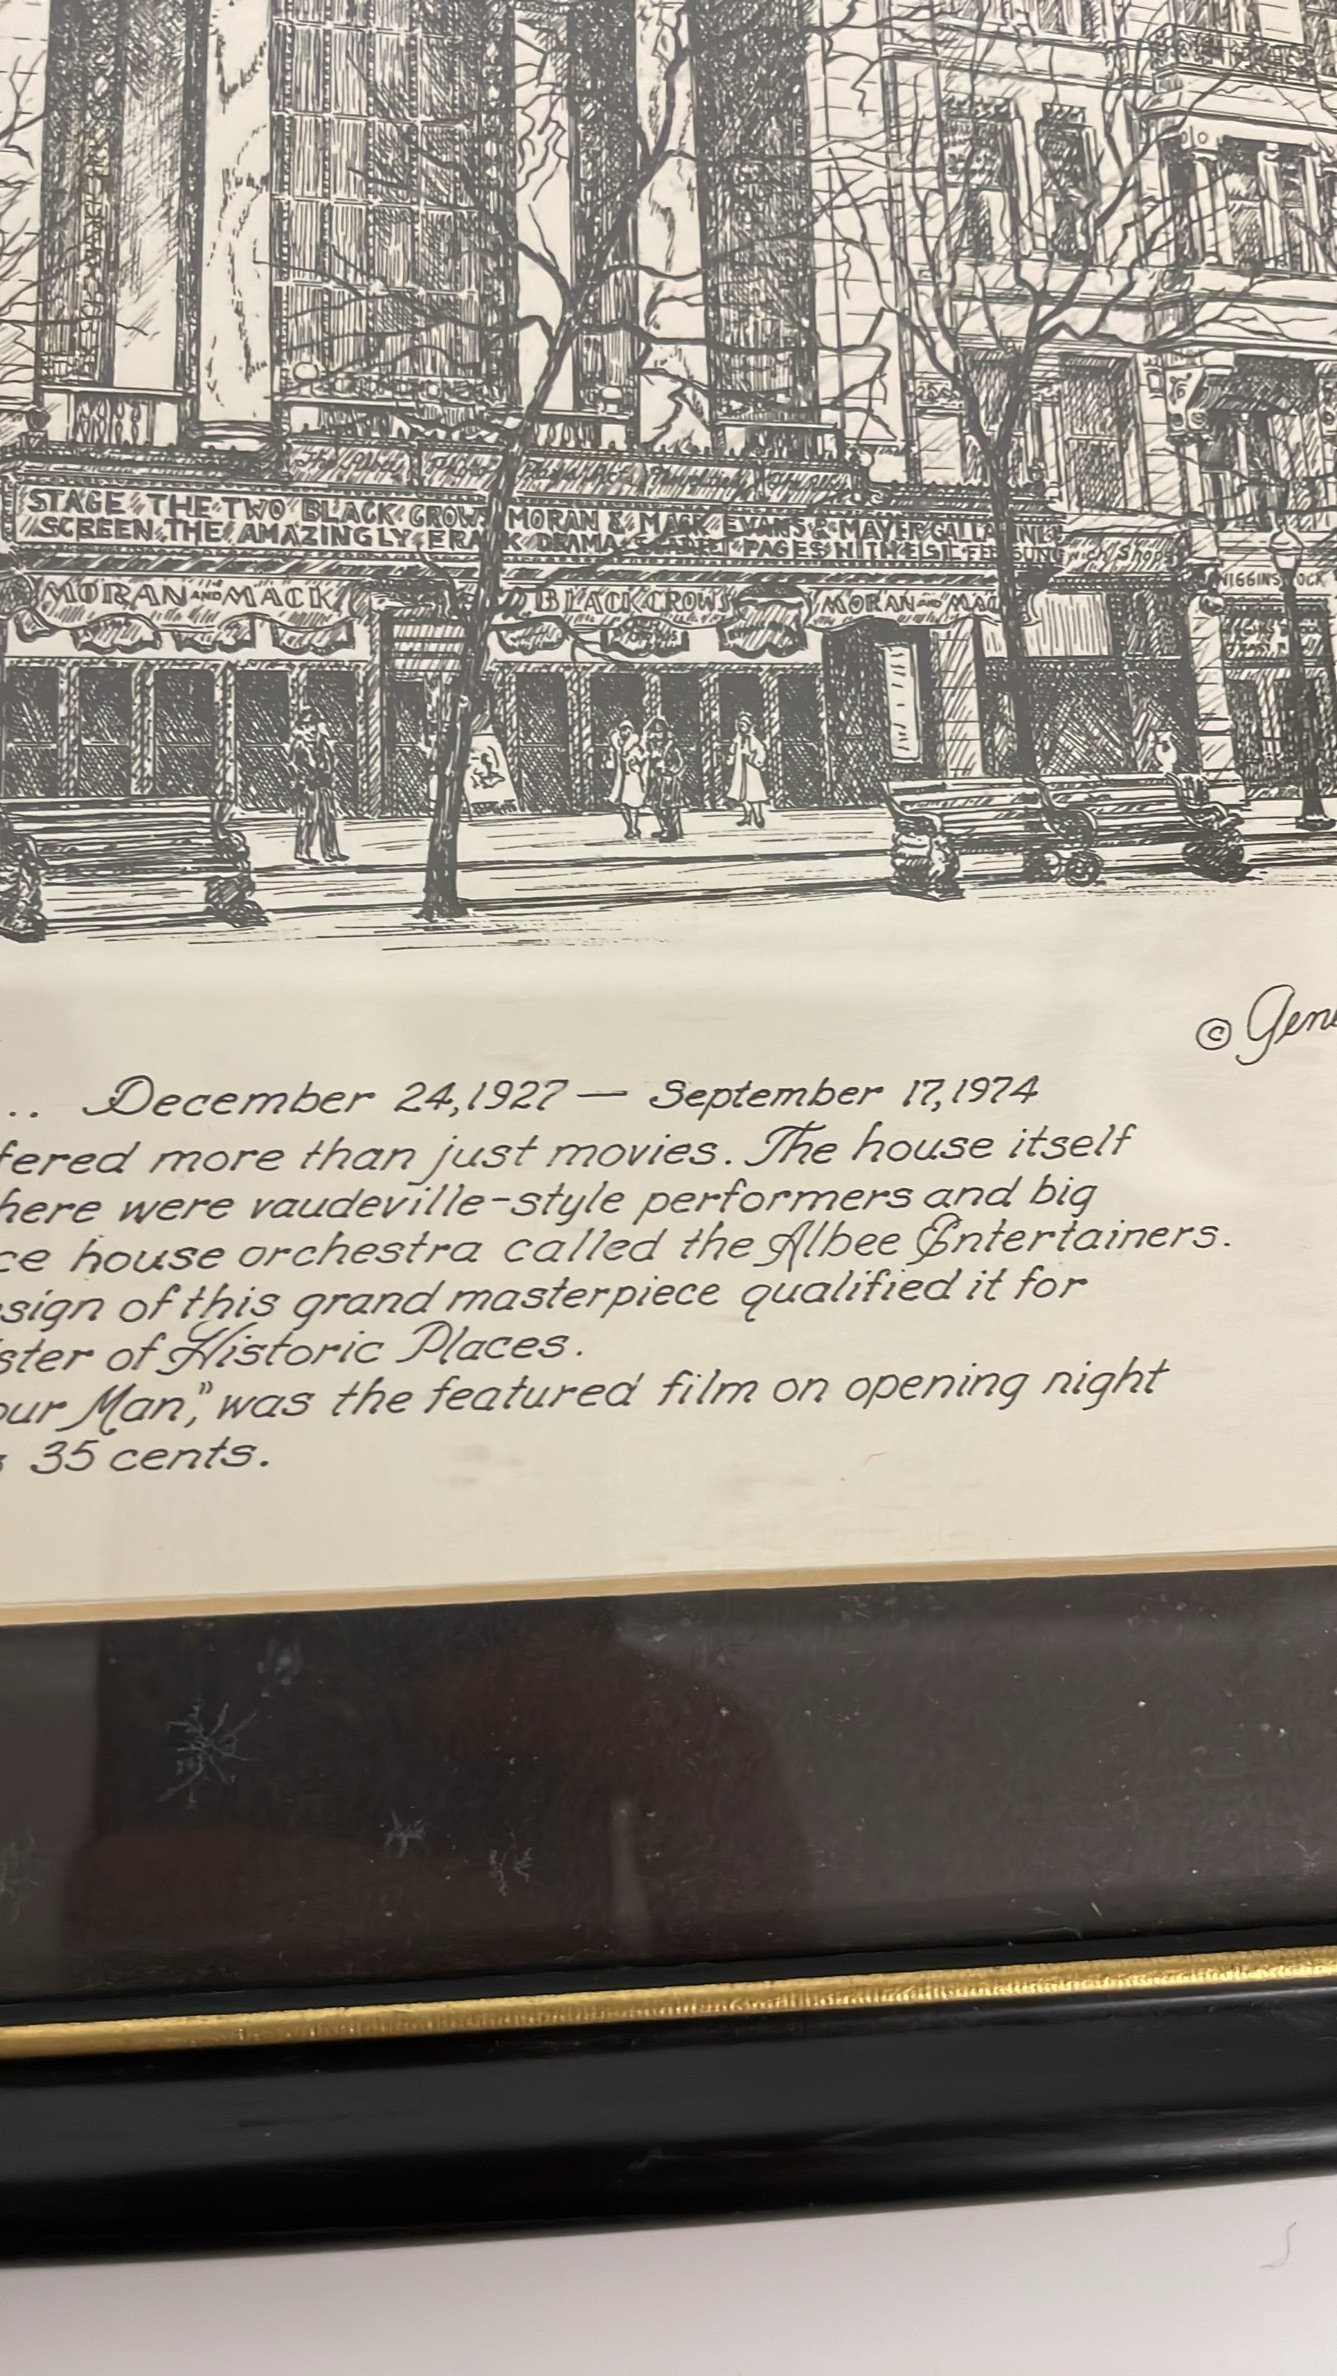 STAGE THE TWO BLACK CROWS MORAN & MACK EVANS & MAYER
SCREEN THE AMAZINGLY FRANK DRAMA SCARLET PAGES WITH ELSIE FERGUSON
MORAN AND MACK
BLACK CROWS
MORAN AND MAC
© Gen
.. December 24, 1927 — September 17, 1974
fered more than just movies. The house itself
here were vaudeville-style performers and big
ce house orchestra called the Albee Entertainers.
sign of this grand masterpiece qualified it for
ster of Historic Places.
our Man," was the featured film on opening night
35 cents.